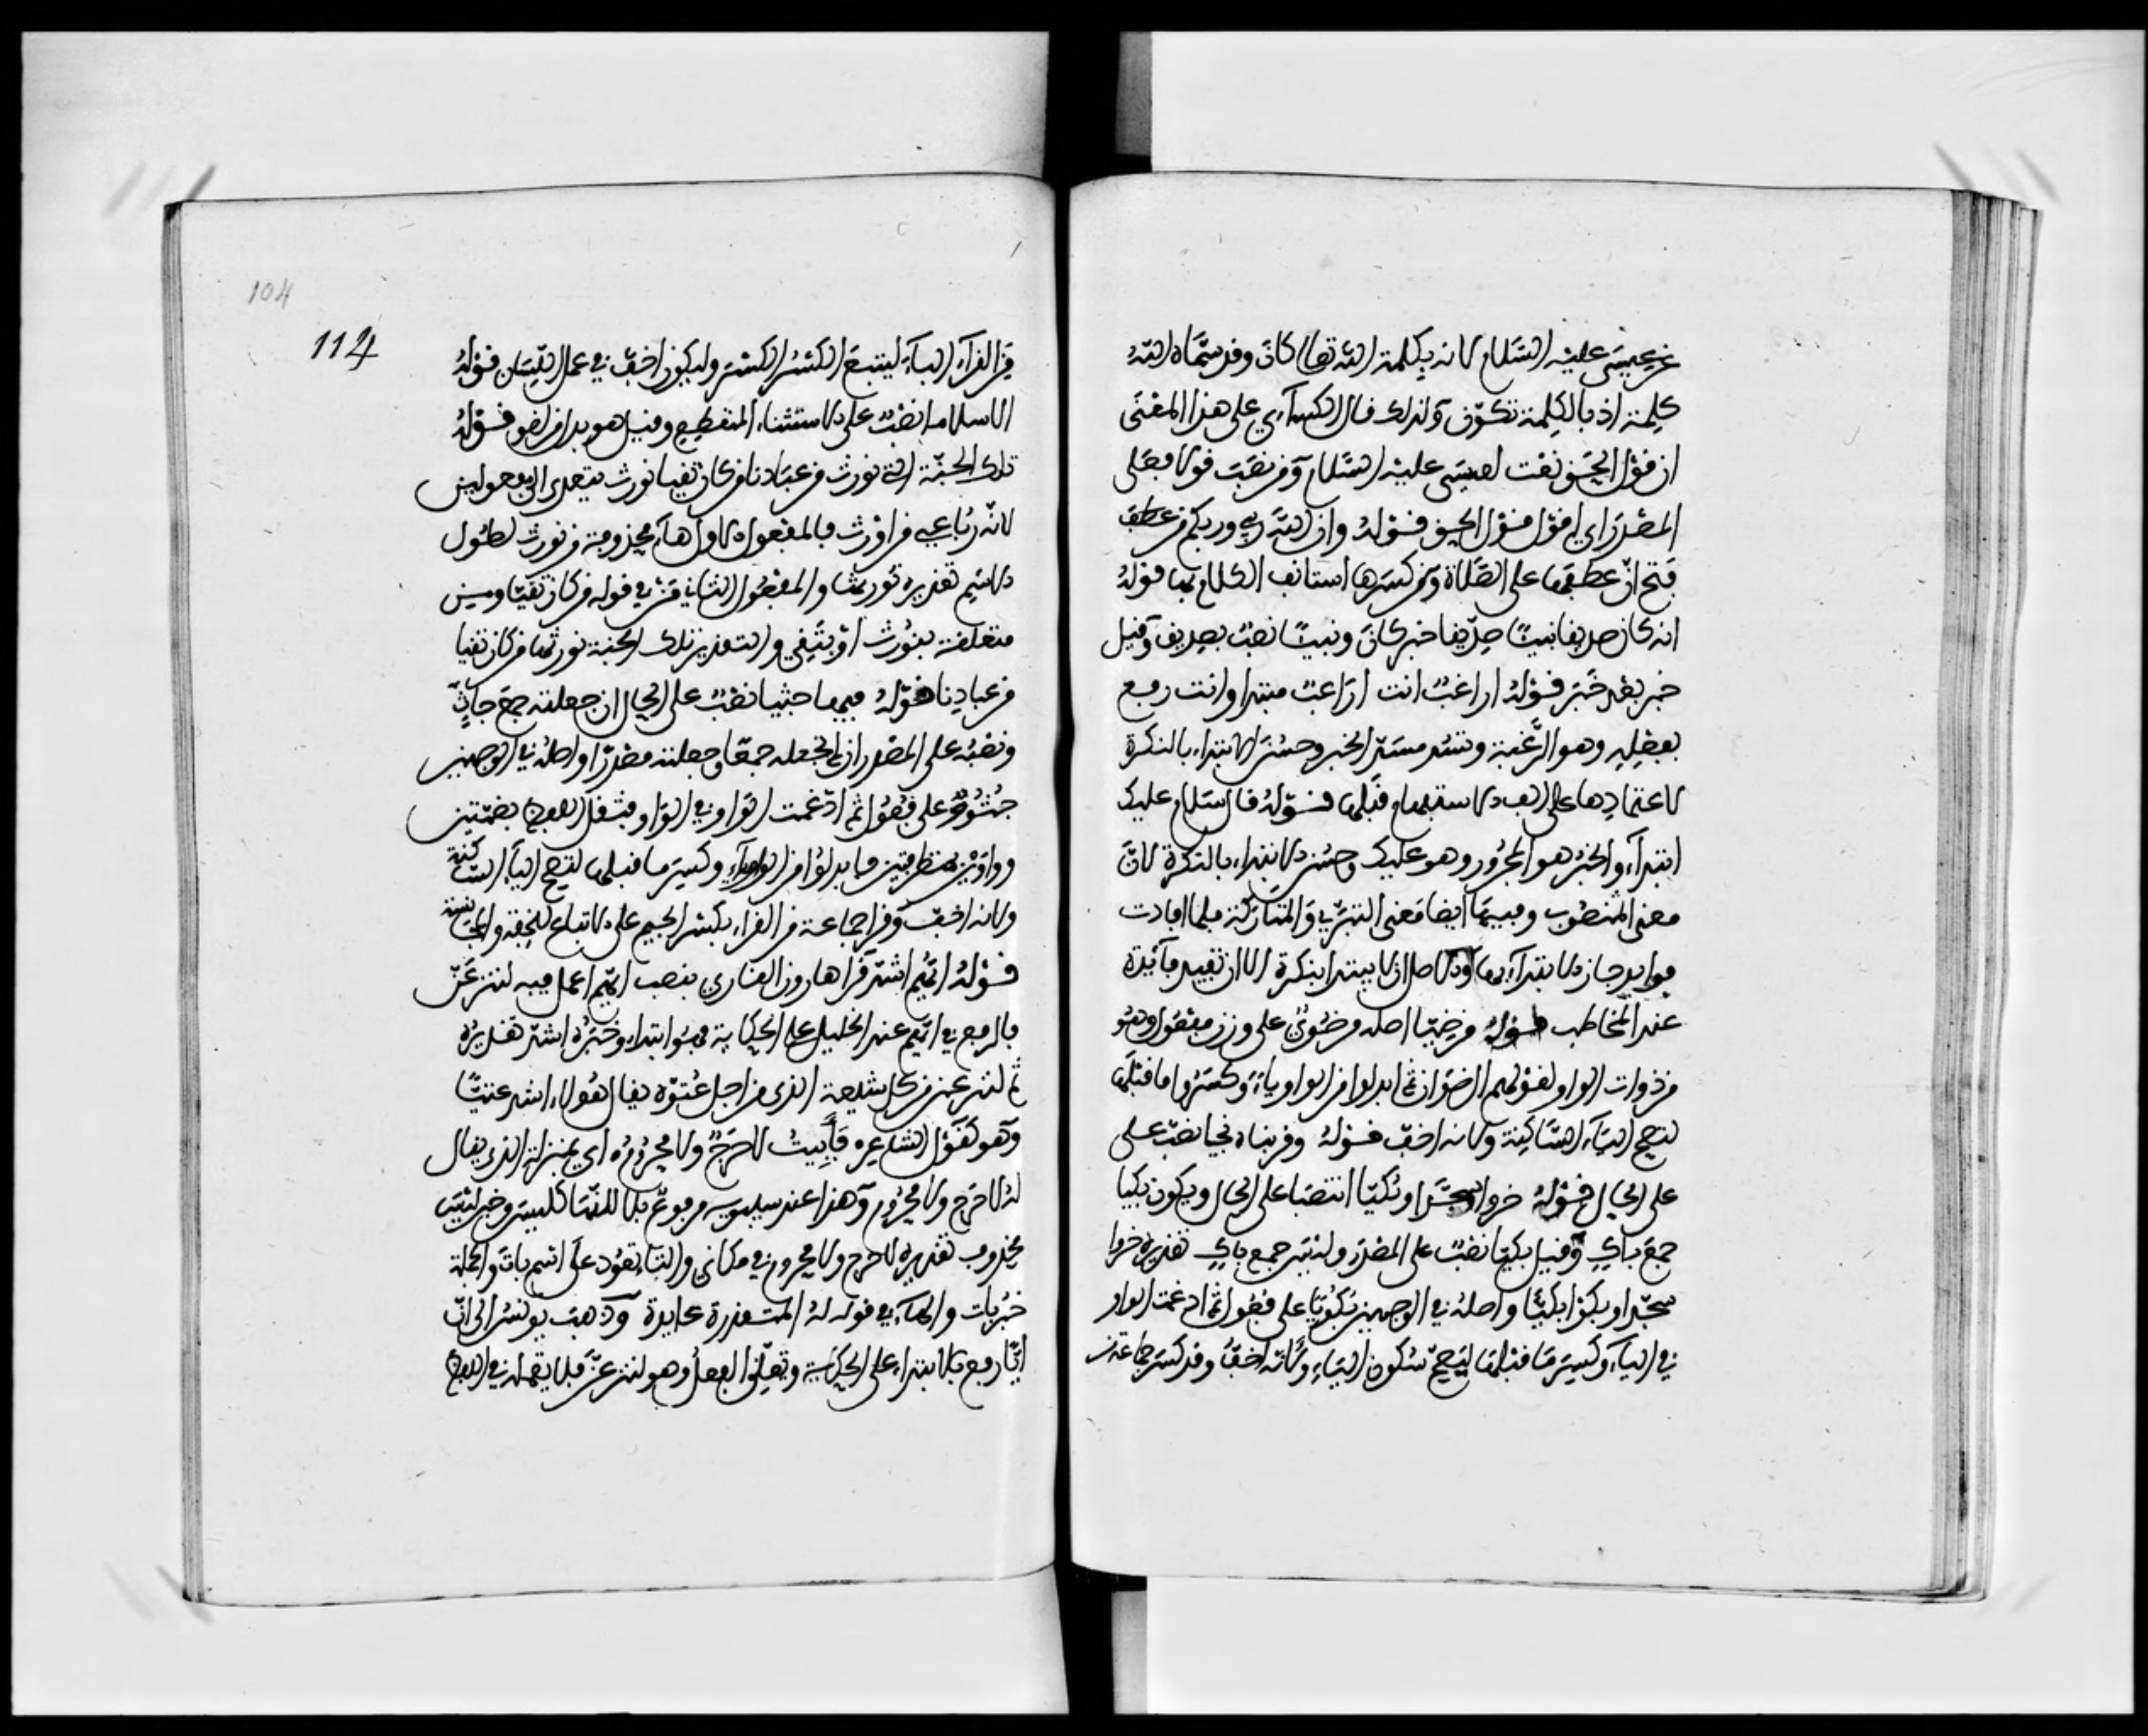 عن عيسى عليه السلام لانه بكلمة الله تعالى كان وقد سماه الله
كلمة اذ بالكلمة تكون ولذلك قال الكسآءي على هذا المعنى
ان قول الحق نعت لعيسى عليه السلام ومن نصب قولا فعلى
المصدر اي اقول قول الحق قوله وان الله ربي وربكم من عطف
فتح ان عطفها على الصلاة ومن كسرها استانف الكلام بها قوله
انه كان صديقا نبيا صديقا خبر كان ونبيا نصب بصديق وقيل
خبر بعد خبر قوله اراغب انت اراغب مبتدا وانت رفع
بفعله وهو الرغبة وتسد مسد الخبر وحسن الابتداء بالنكرة
لاعتمادها على الف الاستفهام قبلها قوله قال سلام عليك
ابتدآء والخبر هو المجرور وهو عليك وحسن الابتداء بالنكرة لان
معنى المنصوب وفيها ايضا معنى التبري والمتاركة فلما افادت
فوايد جاز الابتدآء بها والاصل الا يبتدا بنكرة الا ان تفيد فآئدة
عند المخاطب قوله مرضيا اصله مرضوي على وزن مفعول وهو
من ذوات الواو لقولهم الرضوان ثم ابدلوا من الواو ياء وكسروا ما قبلها
لتصح اليآء الساكنة ولانه اخف قوله وقربناه نجيا نصب على
على الحال قوله خروا سجدا وبكيا انتصبا على الحال ويكون بكيا
جمع باك وقيل بكيا نصب على المصدر وليس جمع باك تقديره خروا
سجدا وبكوا بكيا واصله في الوجهين بكويا على فعول ثم ادغمت الواو
في اليآء وكسر ما قبلها ليصح سكون اليآء ولانه اخف وقد كسر جماعة من
104
114
من القرآء البآء ليتبع الكسر الكسر وليكون اخف في عمل اللسان قوله
الا سلاما نصب على الاستثناء المنقطع وقيل هو بدل من لغو قوله
تلك الجنة التي نورث من عبادنا من كان تقيا نورث يتعدى الى مفعولين
لانه رباعي من اورث فالمفعول الاول هآء محذوفة من نورث لطول
الاسم تقديره نورثها والمفعول الثاني من في قوله من كان تقيا ومن
متعلقة بنورث او بتقي والتقدير تلك الجنة نورثها من كان تقيا
من عبادنا قوله فيها جثيا نصب على الحال ان جعلته جمع جاث
ونصبه على المصدر ان لم تجعله جمعا وجعلته مصدرا واصله في الوجهين
جثوو على فعول ثم ادغمت الواو في الواو فثقل اللفظ بضمتين
وواوين متطرفتين فابدلوا من الواو يآء وكسر ما قبلها لتصح اليآء الساكنة
ولانه اخف وقرا جماعة من القراء بكسر الجيم على الاتباع للخفة والمجانسة
قوله ايهم اشد قرا هارون القاري بنصب ايهم اعمل فيه لننزعن
فالرفع في ايهم عند الخليل على الحكاية فهو ابتداء وخبره اشد تقديره
ثم لننزعن من كل شيعة الذي من اجل عتوه يقال لهولاء اشد عتيا
وهو كقول الشاعر فابيت لا حرج ولا محروم اي بمنزلة الذي يقال
له لا حرج ولا محروم وهذا عند سيبويه مرفوع بلا لانها كليس وخبر ليس
محذوف تقديره لا حرج ولا محروم في مكاني والتاء تعود على اسم بات والجملة
خبر بات والهآء في قوله له المتقدرة عايدة وذهب يونس الى ان
ايا رفع بالابتداء على الحكاية وتعليق الفعل وهو لننزعن فلا يعمل في اللفظ